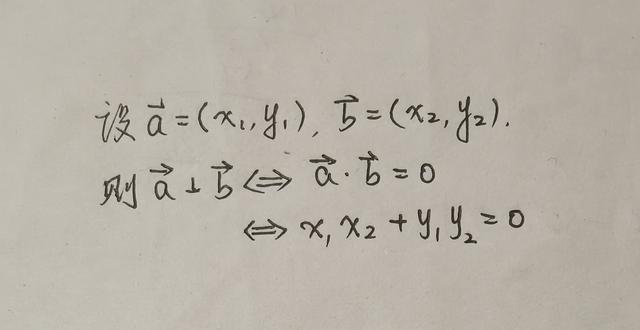 设 a⃗=(x₁,y₁), b⃗=(x₂,y₂).
则 a⃗⊥b⃗ ⇔ a⃗·b⃗=0
⇔ x₁x₂+y₁y₂=0